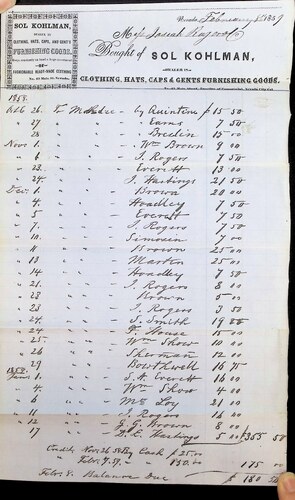 SOL KOHLMAN,
DEALER IN
CLOTHING, HATS, CAPS, AND GENT'S
FURNISHING GOODS.
FASHIONABLE READY-MADE CLOTHING
Nevada, February 1859
Mess Josiah
Bought of SOL KOHLMAN,
DEALER IN
CLOTHING, HATS, CAPS & GENTS FURNISHING GOODS.
1858.
Oct 26. To Mdse - by Quinton $15 50
27 " " - " 7 50
28 " " - " Breslin 15 00
Nov 1. " " - " Wm Brown 9 00
6 " " - " J. Rogers 7 50
23. " " - " Everett 13 00
24. " " - " J. Hastings 21 50
Dec 1. " " - " Brown 20 00
4. " " - " Hoadley 7 50
5 " " - " Everett 7 50
7. " " - " J. Rogers 7 50
10 " " - " 7 00
11 " " - " Brown 25 00
13 " " - " Martin 25 00
14 " " - " Hoadley 7 50
21 " " - " J. Rogers 8 00
22 " " - " Brown 5 00
23 " " - " J. Rogers 3 50
24 " " - " J. Smith 19 00
24 " " - " House 15 00
25. " " - " Wm Show 10 00
26 " " - " Sherman 12 00
29 " " - " Bowthwell 16 75
Jan 1. " " - " Everett 16 00
4. " " - " Wm Show 4 00
6 " " - " Loy 21 00
11 " " - " J. Rogers 16 00
12 " " - " G. G. Brown 8 00
17 " " - " Hastings 5 00 $355 50
Credit, Nov 26 58 By Cash $25.00
Febr. 150.00 175 00
Febr. Balance Due $180 50